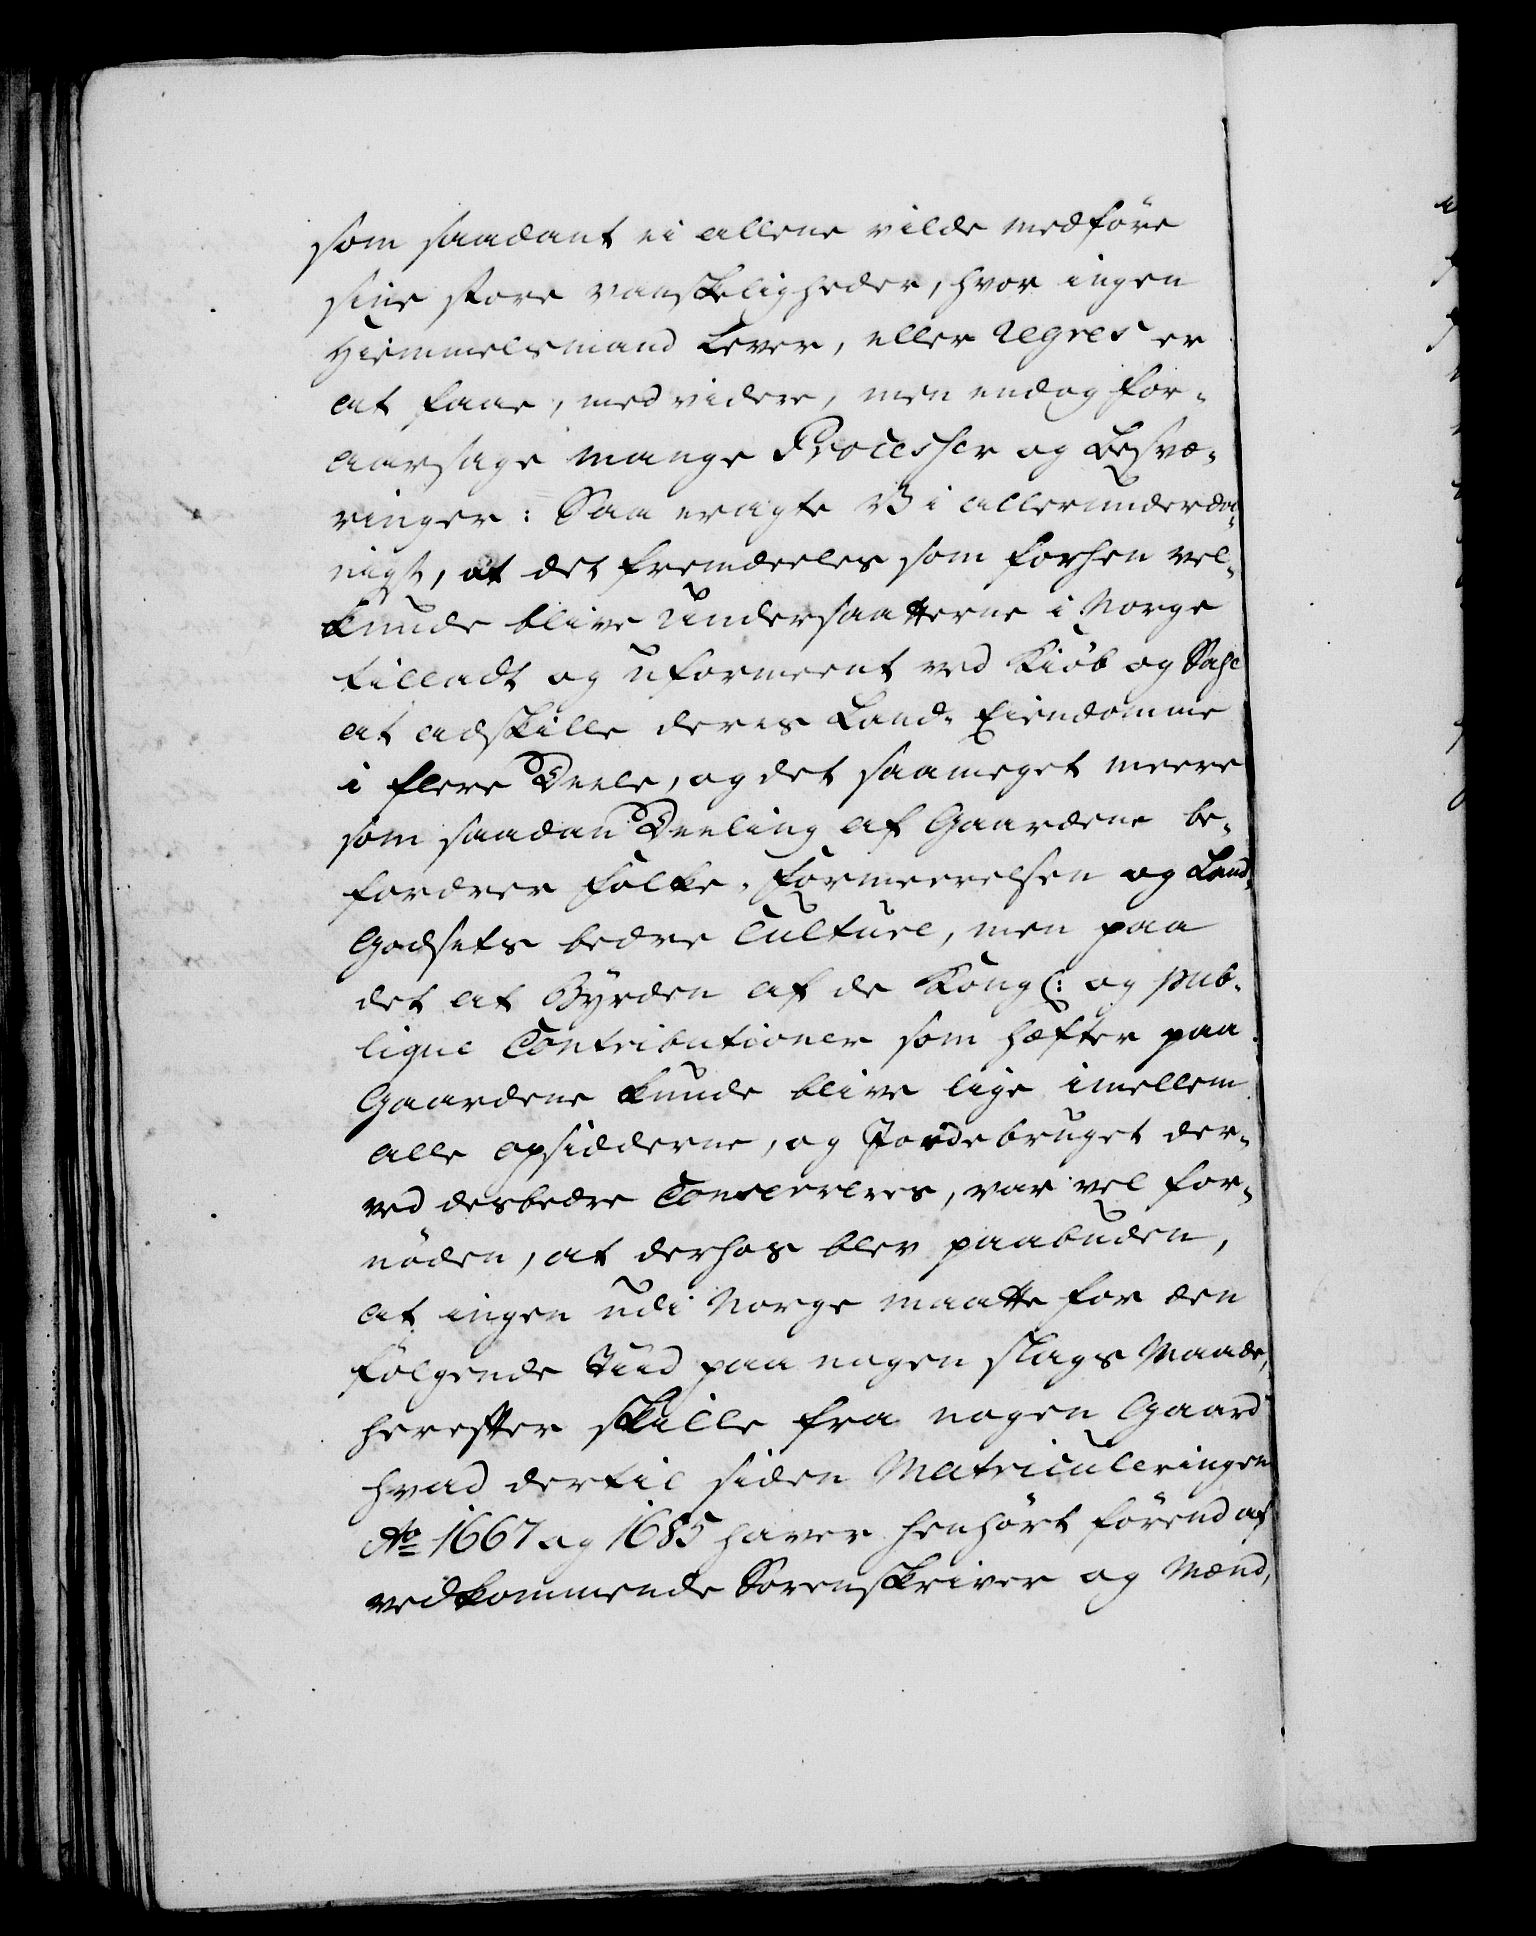 som saadant ei allene vilde medføre
sine store vanskeligheder, hvor ingen
Hiemmelsmand Lever, eller Regres er
at faae, med videre, men endog for-
aarsage mange Processer og Besvæ-
ringer: Saa eragte Vi allerunderdan-
nigst, at det fremdeeles som forhen vel-
kunde blive Undersaatterne i Norge
tilladt og uformeent ved Kiöb og Salg
at adskille deres Land-Eiendomme
i flere Deele, og det saameget meere
som saadan Deeling af Gaardene be-
fordrer Folke-Formeerelsen og Land-
Godsets bedre Culture, men paa
det at Byrden af de Kongl: og pub-
lique Contributioner som hæfter paa
Gaardene kunde blive lige imellem
alle opsidderne, og Jordebruget der-
ved desbedre Conserveres, var vel for-
nöden, at derhos blev paabuden,
at ingen udi Norge maatte for den
følgende Tiid paa nogen slags Maade,
herefter skille fra nogen Gaard
hvad dertil siden Matriculeringen
Ao 1667 og 1685 haver henhørt førend af
vedkommende Sorenskriver og Mænd,